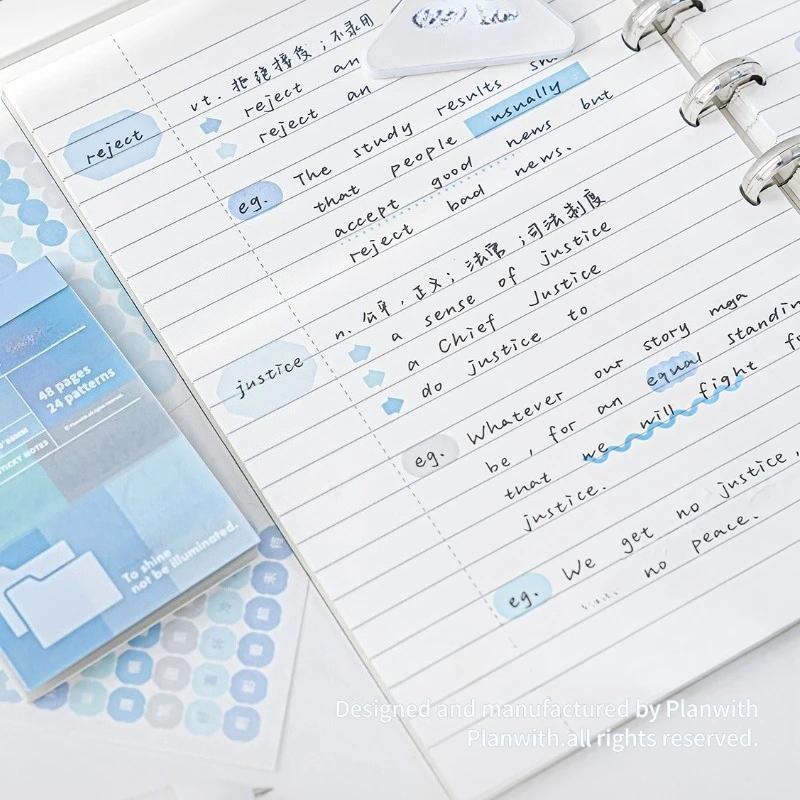 vt. 拒绝接受；不录用
reject an
reject an
reject
eg. The study results
that people usually
accept good news but
reject bad news.
n. 公平，正义；法官；司法制度
a sense of justice
a Chief Justice
do justice to
justice
eg. Whatever our story
be, for an equal
that we will fight
justice.
eg. We get no justice,
no peace.
48 pages
24 patterns
STICKY NOTES
To shine
not be illuminated.
Designed and manufactured by Planwith
Planwith.all rights reserved.